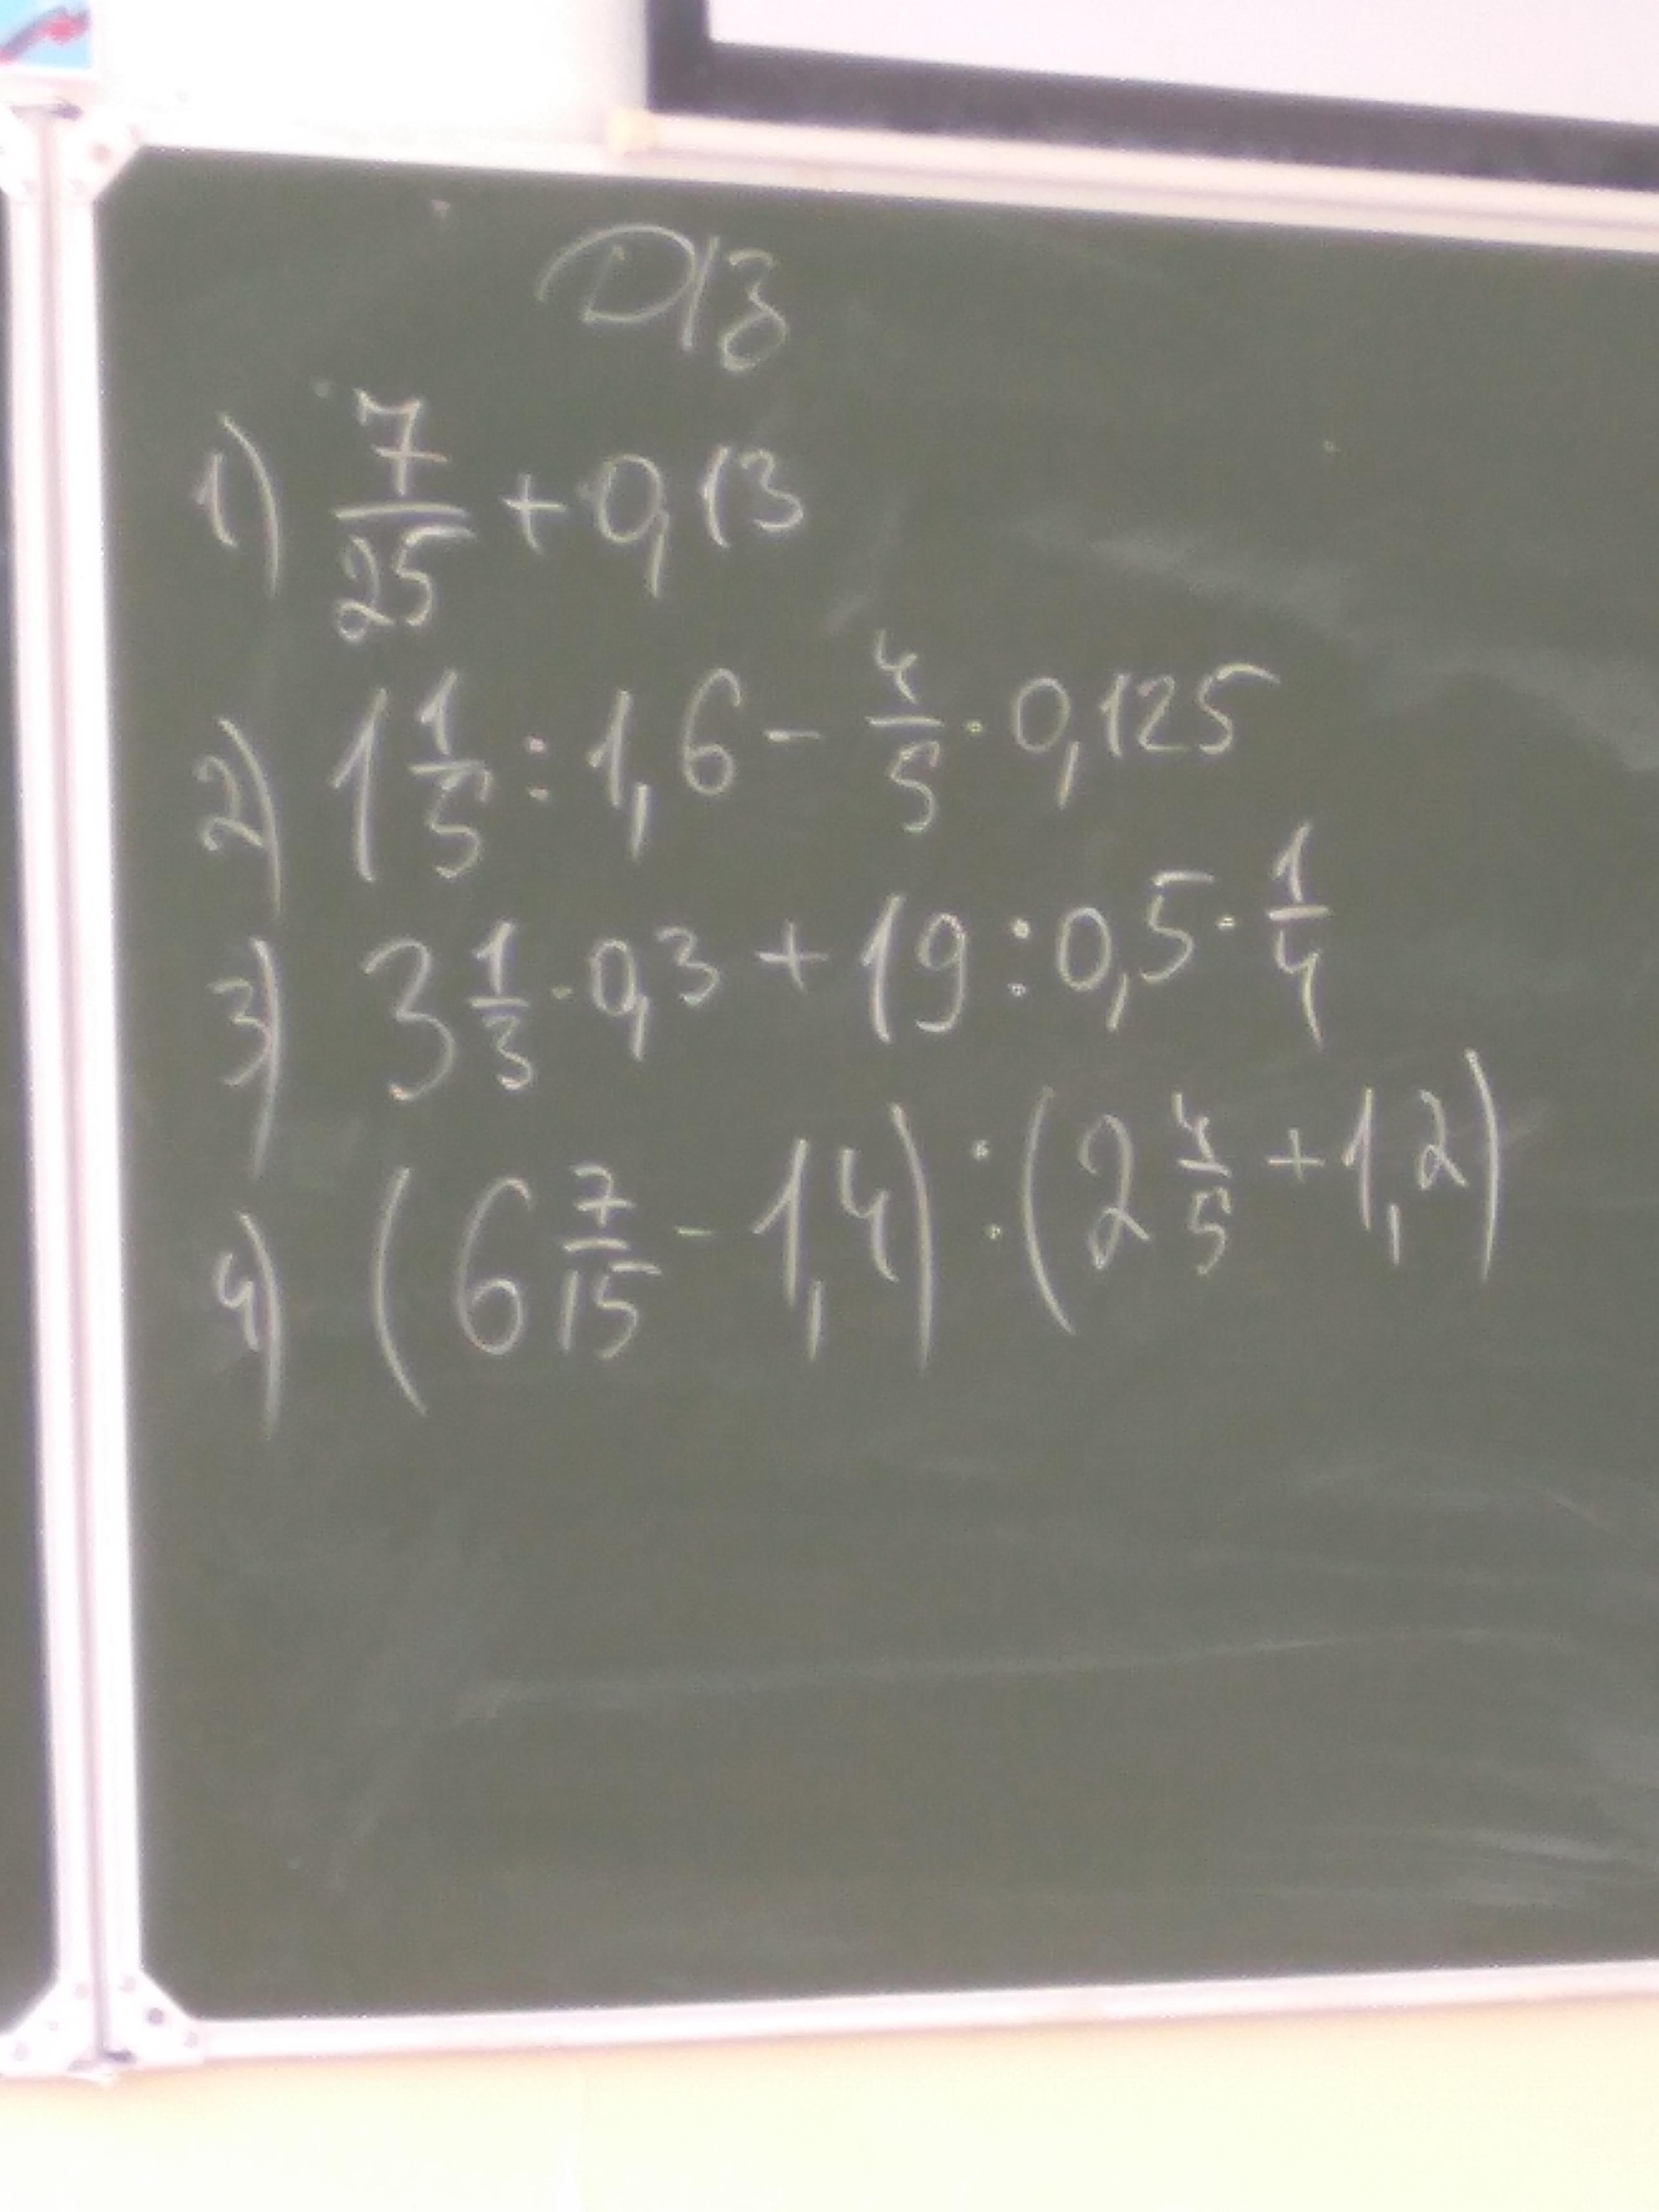 D/з
1) 7/25 + 0,13
2) 1 1/5 : 1,6 - 4/5 · 0,125
3) 3 1/3 · 0,3 + 19 : 0,5 · 1/4
4) (6 7/15 - 1,4) : (2 4/5 + 1,2)